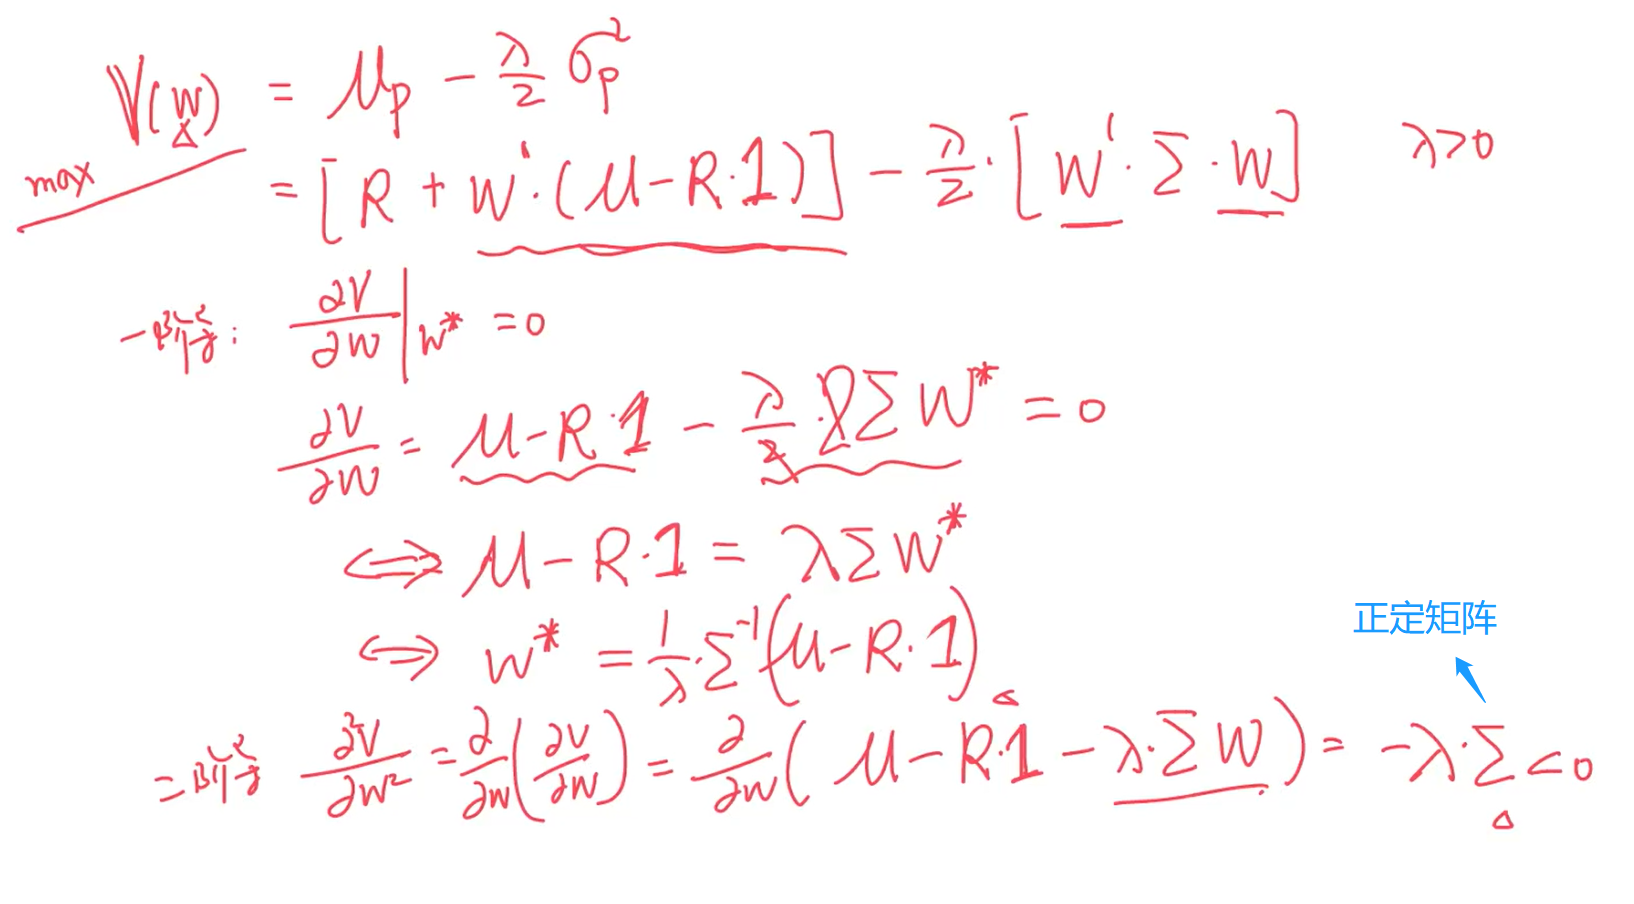 V(W) = μp - λ/2 σp²
max = [R + W'·(μ-R·1)] - λ/2·[W'·Σ·W] λ>0
一阶导: ∂V/∂W |W* =0
∂V/∂W = μ-R·1 - λ/2·2ΣW* = 0
⟺ μ-R·1 = λΣW*
⟺ W* = 1/λ·Σ⁻¹(μ-R·1)
正定矩阵
二阶导 ∂²V/∂W² = ∂/∂W(∂V/∂W) = ∂/∂W(μ-R·1-λ·ΣW) = -λ·Σ<0